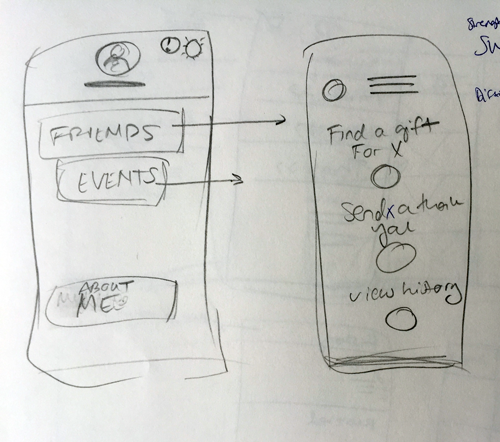 FRIENDS
EVENTS
ABOUT
ME
Find a gift
For X
Send x a thank
you
view history